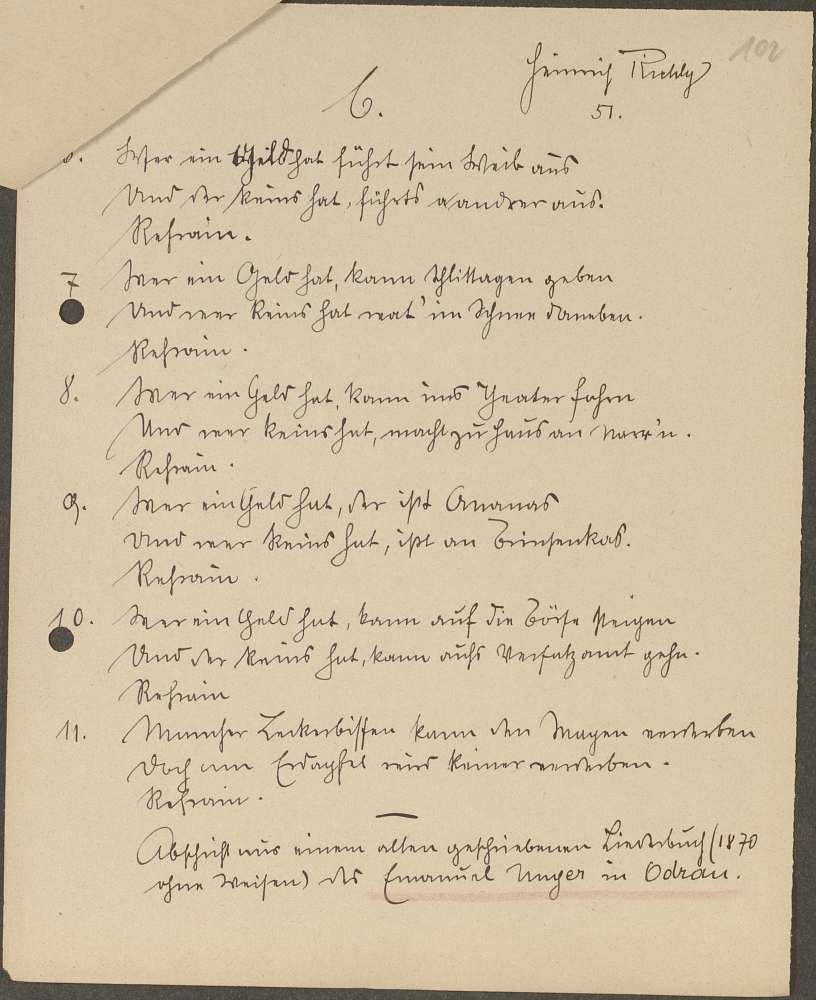 102
Heinrich Richly
6.
51.
6. Wer ein Geld hat führt sein Weib aus
Und der keins hat, führts a andrer aus.
Refrain.
7 Wer ein Geld hat, kann Schlittagen geben
Und wer keins hat wat' im Schnee daneben.
Refrain.
8. Wer ein Geld hat, kann ins Theater fahrn
Und wer keins hat, macht zu Haus an Narr'n.
Refrain.
9. Wer ein Geld hat, der ißt Ananas
Und wer keins hat, ißt an Brinsenkas.
Refrain.
10. Wer ein Geld hat, kann auf die Börse steigen
Und der keins hat, kann aufs Versatzamt gehn.
Refrain
11. Mancher Leckerbissen kann den Magen verderben
Doch am Erdapfel wird keiner verderben.
Refrain.
Abschrift aus einem alten geschriebenen Liederbuch (1870
ohne Weisen) des Emanuel Unger in Odrau.